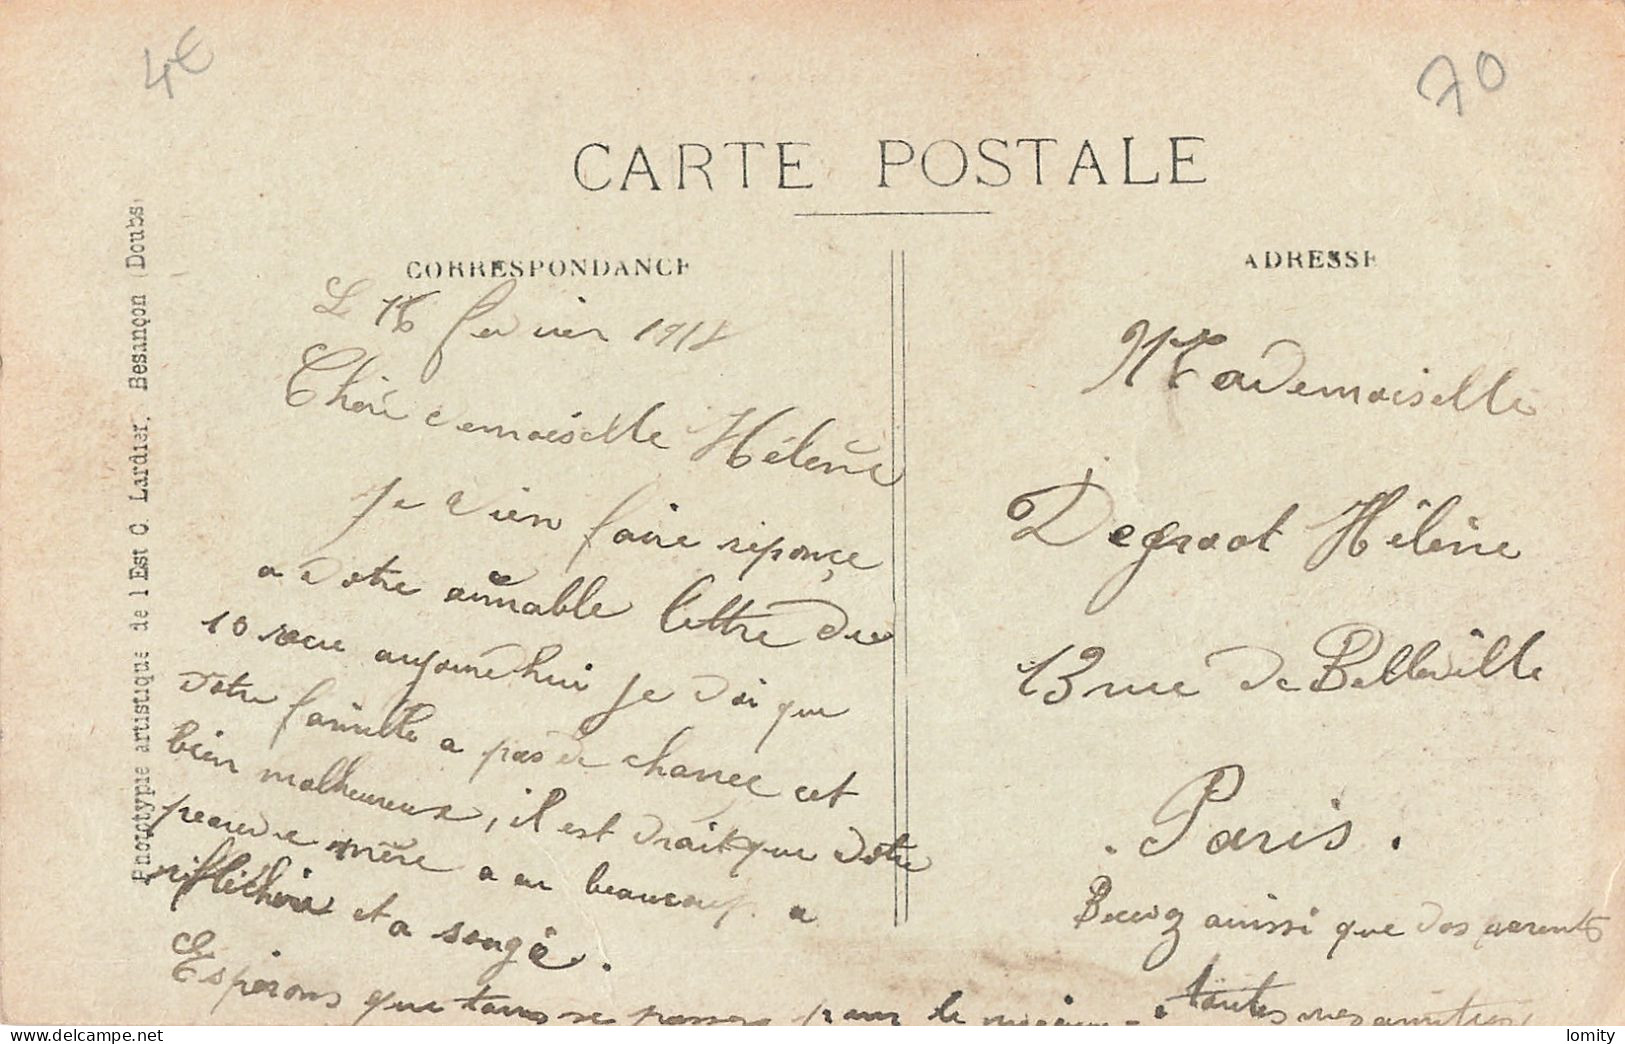 4€
70
CARTE POSTALE
CORRESPONDANCE
ADRESSE
Phototypie artistique de l'Est C. Lardier, Besançon Doubs
L 16 fevrier 1918
Chère demoiselle Hélène
Je vien faire réponce
a votre aimable lettre du
10 recu aujourdehui je voi que
votre famille a pas de chance cet
bien malheureux, il est vrait que votre
peauvre mère a eu beaucoup a
rifléchire et a songé.
Espérons que tous se passera pour le mieux
Mademoiselle
Degroot Hélène
13 rue de Belleville
. Paris .
Bucuez ainssi que vos parents
toutes mes amitiés
delcampe.net
lomity